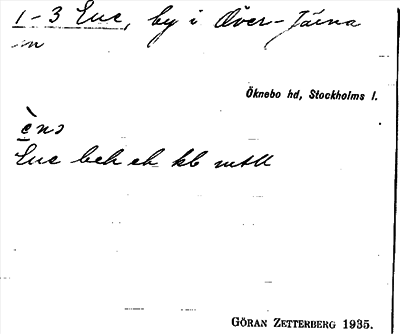 1-3 Ene, by i Över-Järna
sn
Öknebo hd, Stockholms l.
èṇɔ
Ene beh eh kb mtll
GÖRAN ZETTERBERG 1935.